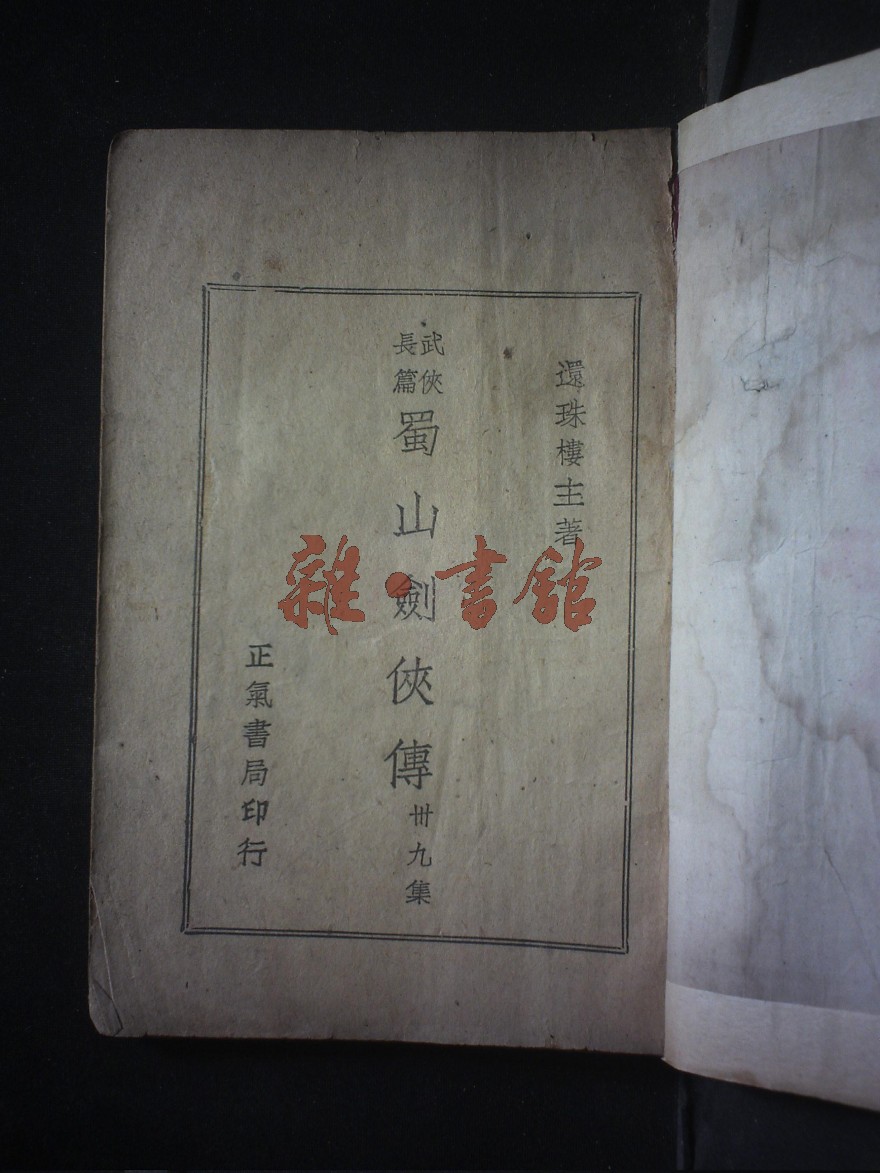 還珠樓主著
武俠
長篇
蜀山劍俠傳
卅九集
正氣書局印行
雜·書館